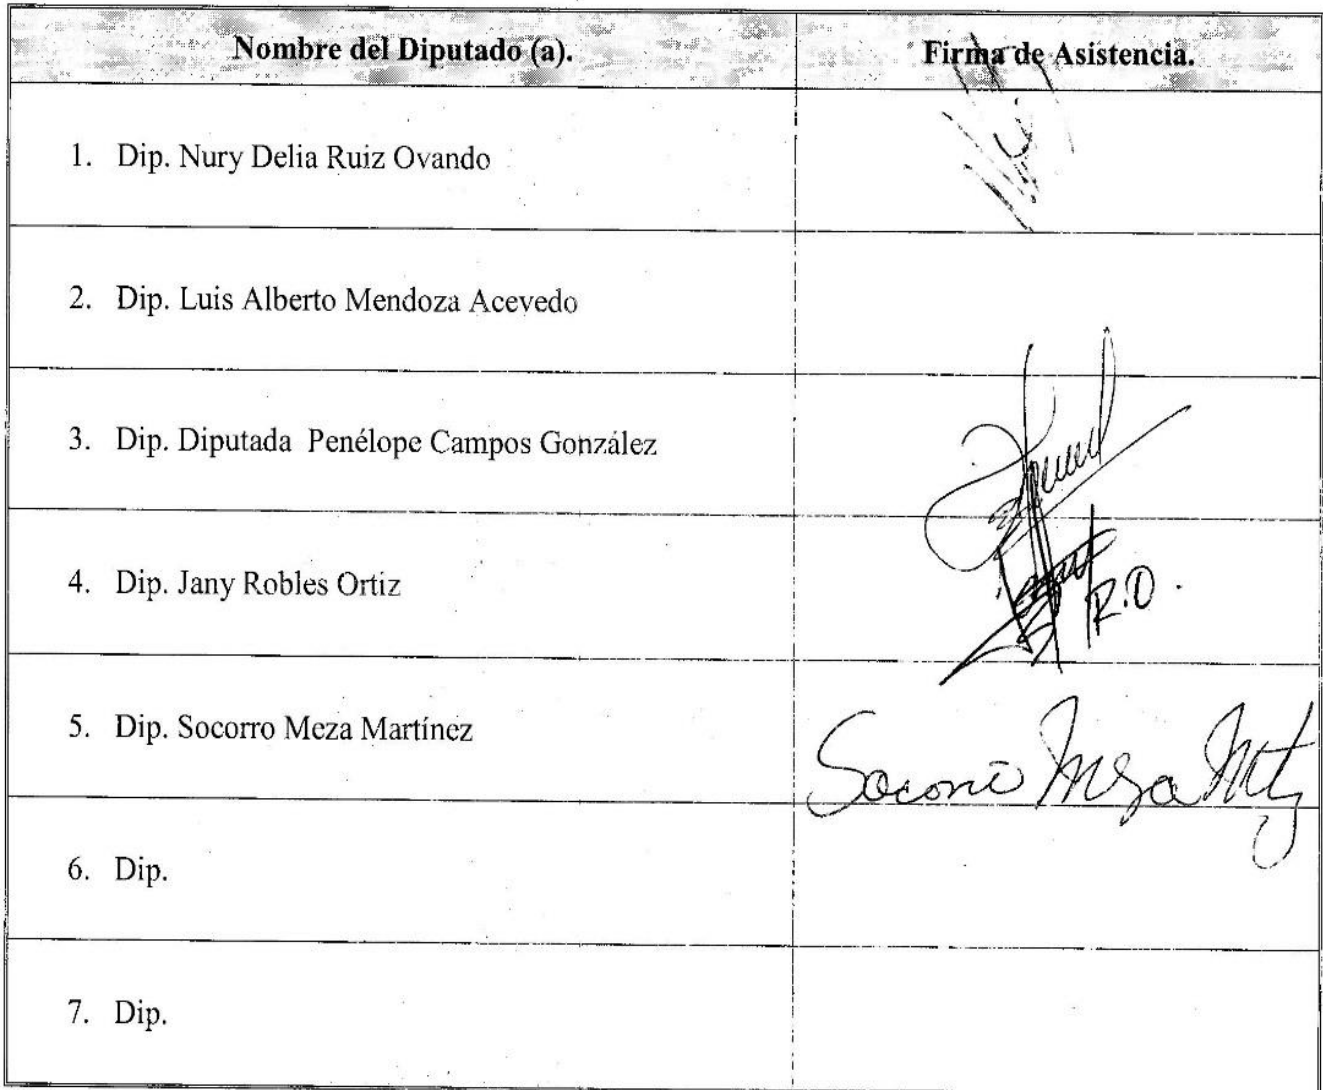 Nombre del Diputado (a). Firma de Asistencia.
1. Dip. Nury Delia Ruiz Ovando
2. Dip. Luis Alberto Mendoza Acevedo
3. Dip. Diputada Penélope Campos González
4. Dip. Jany Robles Ortiz
R.O.
5. Dip. Socorro Meza Martínez
Socorro Meza Mtz
6. Dip.
7. Dip.